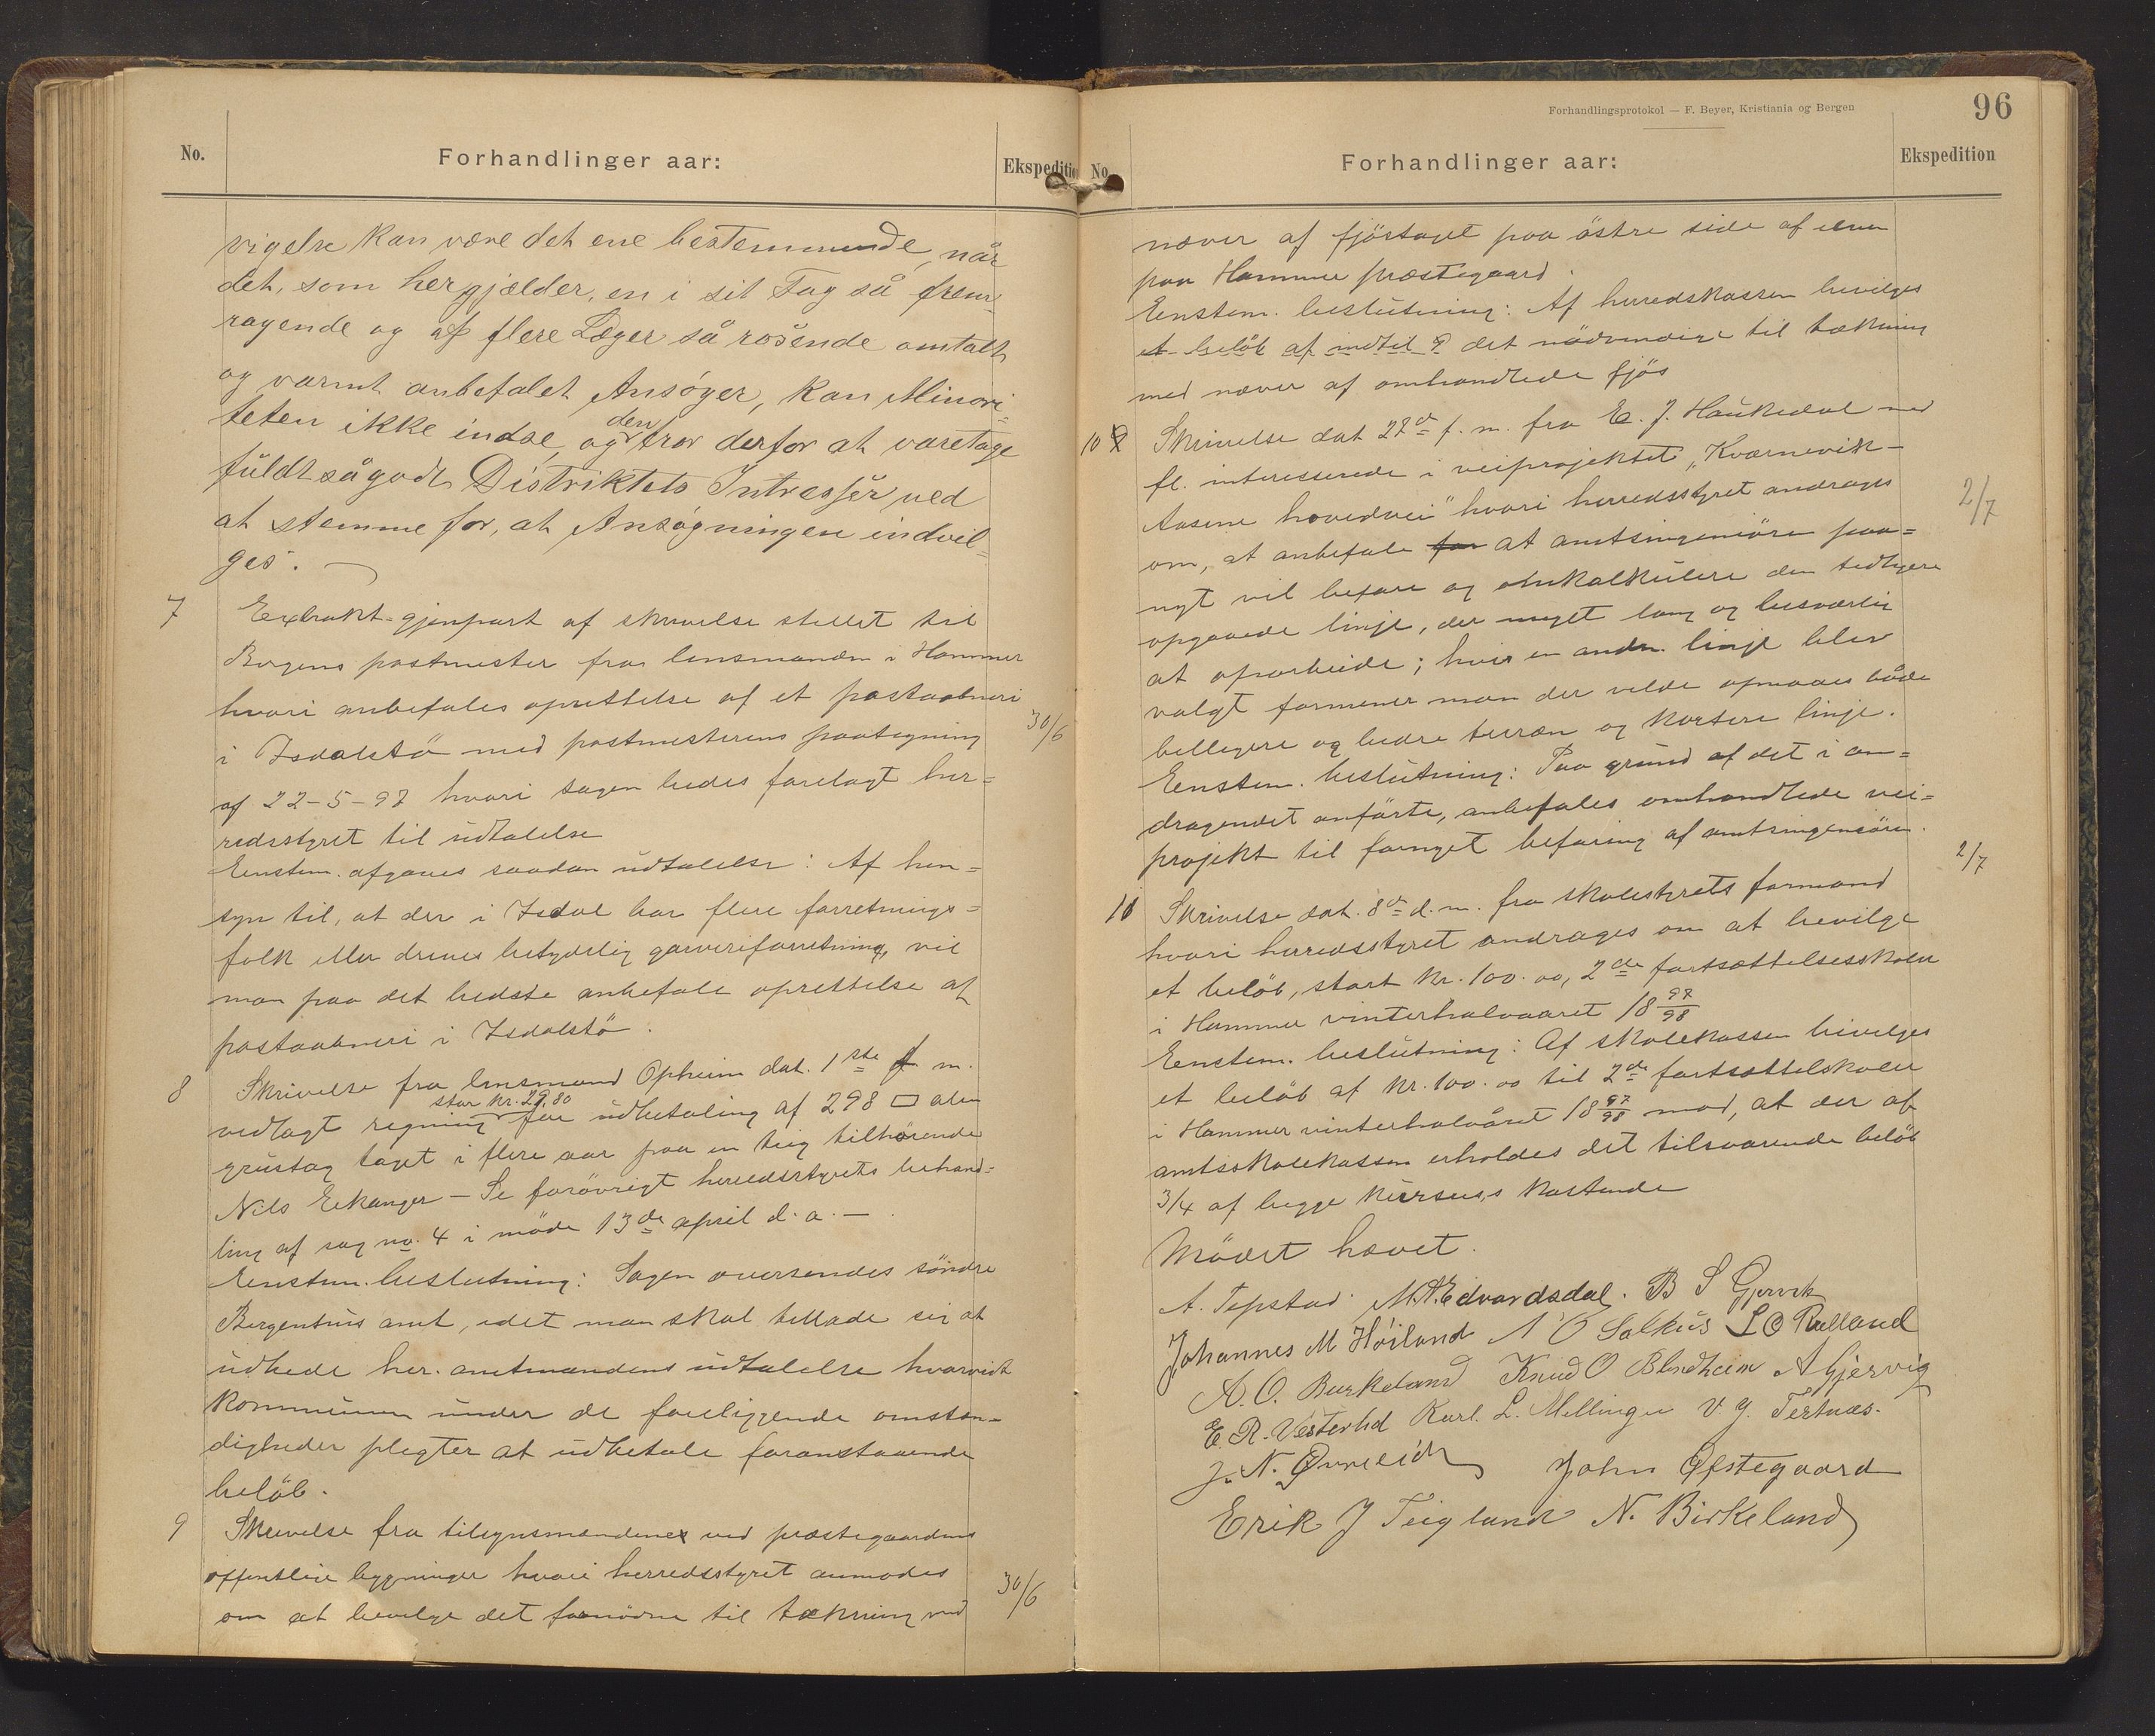 No.
Forhandlinger aar:
Ekspeditio
vigelse kan være det ene bestemmende, når
det, som her gjælder, en i sit Fag så frem-
ragende og af flere Læger så rosende omtalt
og varmt anbefalet Ansøger, kan Minori-
teten ikke indse, og den tror derfor at varetage
fuldt så godt Distriktets Intresser ved
at stemme for, at Ansøgningen indvil-
ges. —
7 Extrakt-gjenpart af skrivelse stillet til
Bergens postmester fra lensmanden i Hammer
hvori anbefales oprettelse af et postaabneri
i Isdalstö med postmesterens paategning 30/6
af 22-5-97 hvori sagen bedes forelagt her=
redsstyret til udtalelse
Eenstem. afgaves saadan udtalelse: Af hen=
syn til, at der i Isdal bor flere forretnings=
folk eller drives betydelig garveriforretning, vil
man paa det bedste anbefale oprettelse af
postaabneri i Isdalstö.
8 Skrivelse fra lensmand Opheim dat. 1ste f. m.
vedlagt regning stor kr. 29.80 for udbetaling af 298 □ alen
grustag taget i flere aar paa en teig tilhörende
Nils Eikanger — Se forövrigt herredsstyrets behand=
ling af sag no. 4 i möde 13de april d. a. —
Eenstem. beslutning: Sagen oversendes söndre
Bergenhus amt, idet man skal tillade sig at
udbede hr. amtmandens udtalelse hvorvidt
kommunen under de foreliggende omstæn-
digheder plegter at udbetale foranstaaende
belöb.
9 Skrivelse fra tilsynsmændene ved præstegaardens
offentlige bygninger hvori herredsstyret anmodes 30/6
om at bevilge det fornödne til tækning med
Forhandlingsprotokol — F. Beyer, Kristiania og Bergen
96
No.
Forhandlinger aar:
Ekspedition
næver af fjöstaget paa östre side af
paa Hammer præstegaard.
Enstem. beslutning: Af herredskassen bevilges
et belöb af indtil det nödvendige til tækning
med næver af omhandlede fjös
10 Skrivelse dat 22de f. m. fra E. J. Haukedal med
fl. interesserede i veiprojektet „Kværnevik-
Aasene hovedvei" hvori herredsstyret andrages 2/7
om, at anbefale for at amtsingeniören paa=
nyt vil befare og omkalkulere den tidligere
opgaaede linje, der meget lang og besværlig
at oparbeide; hvis en anden linje blev
valgt formener man der vilde opnaaes både
billigere og bedre terræn og kortere linje.
Eenstem. beslutning: Paa grund af det i an=
dragendet anförte, anbefales omhandlede vei=
projekt til fornyet befaring af amtsingeniören. 2/7
11 Skrivelse dat. 8de d. m. fra skolestyrets formand
hvori herredsstyret andrages om at bevilge
et belöb, stort kr. 100.00, 2de fortsættelsesskoler
i Hammer vinterhalvaaret 18 97/98
Eenstem. beslutning: Af skolekassen bevilges
et belöb af kr. 100.00 til 2de fortsættelskoler
i Hammer vinterhalvåret 18 97/98 mod, at der af
amtsskolekassen erholdes det tilsvarende belöb
3/4 af begge kursus's kostende
Mödet hævet.
A. Tepstad. M.A. Edvardsdal. B S Gjervik
Johannes M Höiland N O Salhus L O Rælland
A. O. Burkeland Knud O Blindheim A Gjervig
E. R. Vesterlid Karl. L. Mellingen V. J. Tertnæs.
J. N. Qvineide John Ofstegaard
Erik J Teigland N. Birkeland